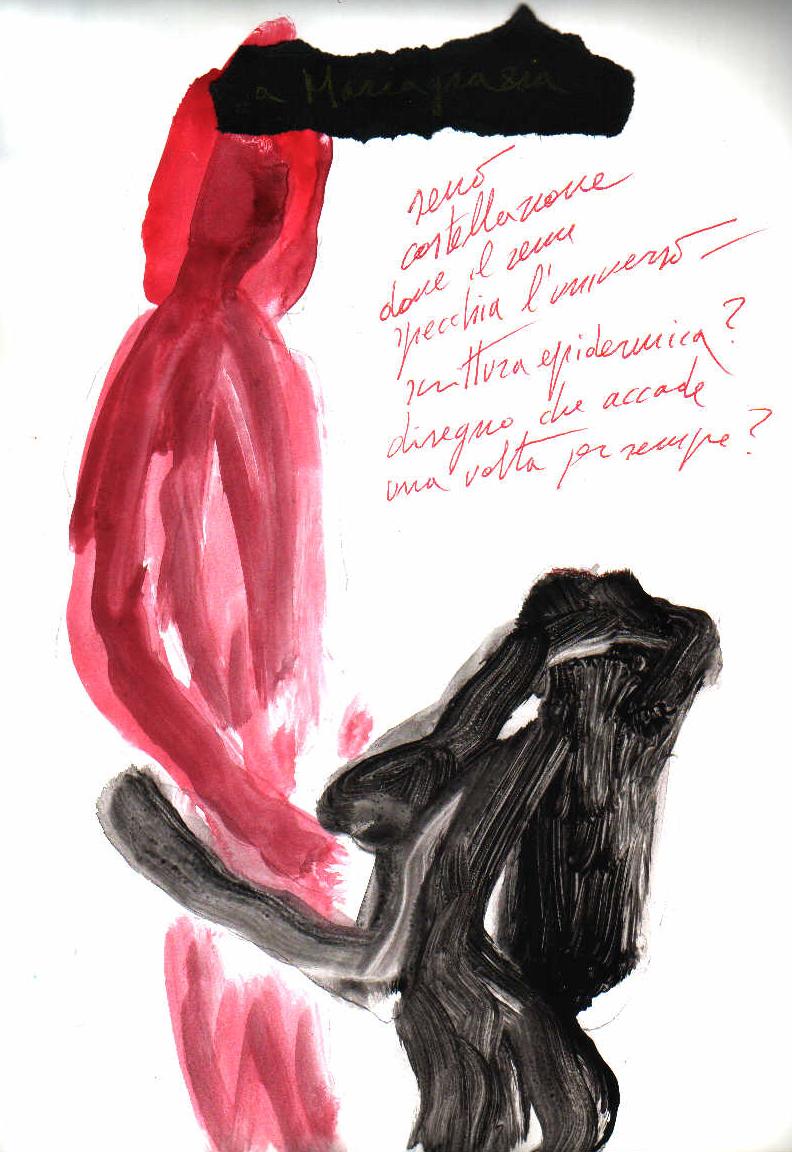 a Mariagrazia
seno
costellazione
dove il seme
specchia l'universo –
scrittura epidermica?
disegno che accade
una volta per sempre?